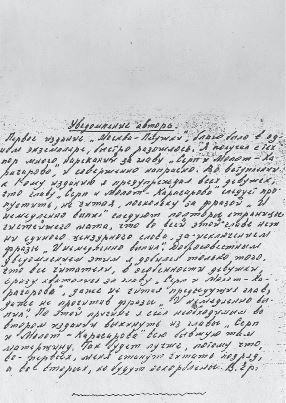 Уведомление автора.
Первое издание „Москва – Петушки", благо было в од-
ном экземпляре, быстро разошлось. Я получил с тех
пор много нареканий за главу „Серп и Молот – Ка-
рачарово", и совершенно напрасно. Во вступлении
к ному изданию я предупреждал всех девушек,
что главу „Серп и Молот – Карачарово" следует про-
пустить, не читая, поскольку за фразой „И
немедленно выпил" следуют полторы страницы
чистейшего мата, что во всей этой главе нет
ни единого цензурного слова, за исключением
фразы „И немедленно выпил". Добросовестным
уведомлением этим я добился только того,
что все читатели, в особенности девушки,
сразу хватались за главу „Серп и Молот – Ка-
рачарово", даже не читая предыдущих глав,
даже не прочитав фразы „И немедленно вы-
пил". По этой причине я счел необходимым во
втором издании выкинуть из главы „Серп
и Молот – Карачарово" всю бывшую там
матерщину. Так будет лучше, потому что,
во-первых, меня станут читать подряд,
а во-вторых, не будут оскорблены. В. Ер.